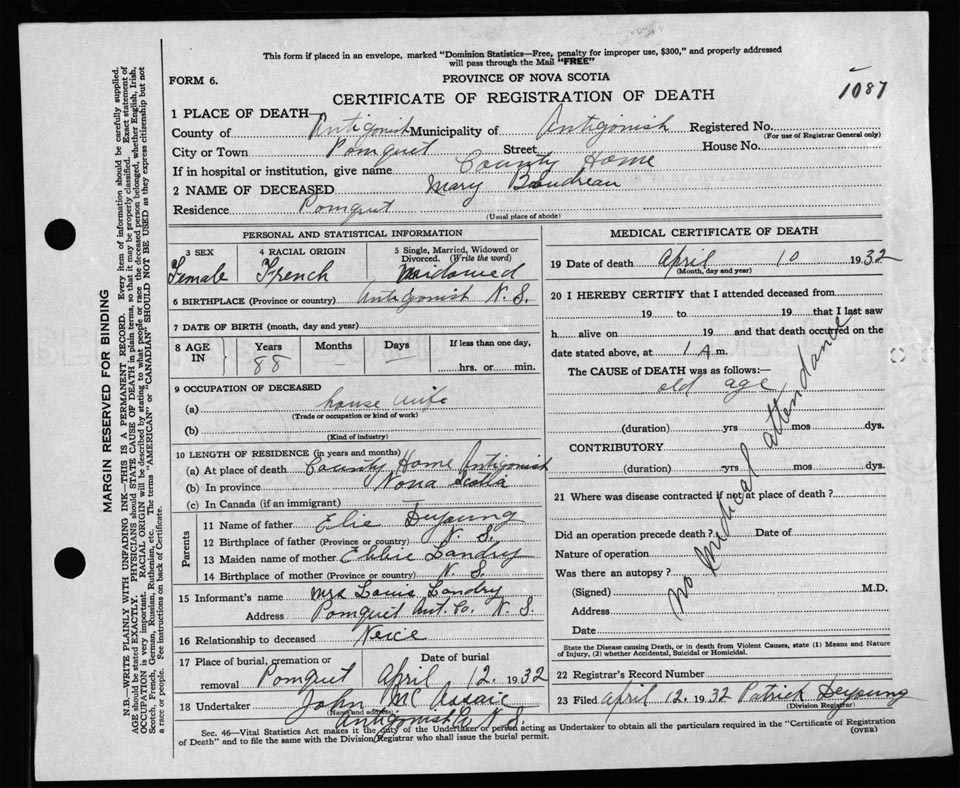 This form if placed in an envelope, marked "Dominion Statistics—Free, penalty for improper use, $300," and properly addressed
will pass through the Mail "FREE"
FORM 6.
PROVINCE OF NOVA SCOTIA
CERTIFICATE OF REGISTRATION OF DEATH
1087
1 PLACE OF DEATH—
County of Antigonish Municipality of Antigonish Registered No.
(For use of Registrar General only)
City or Town Pomquet Street House No.
If in hospital or institution, give name County Home
2 NAME OF DECEASED Mary Boudreau
Residence Pomquet
(Usual place of abode)
PERSONAL AND STATISTICAL INFORMATION
3 SEX 4 RACIAL ORIGIN 5 Single, Married, Widowed or Divorced. (Write the word)
Female French Widowed
6 BIRTHPLACE (Province or country) Antigonish N.S.
7 DATE OF BIRTH (month, day and year)
8 AGE IN Years Months Days If less than one day,
88 — — hrs. or min.
9 OCCUPATION OF DECEASED
(a) house wife
(Trade or occupation or kind of work)
(b)
(Kind of industry)
10 LENGTH OF RESIDENCE (in years and months)
(a) At place of death County Home Antigonish
(b) In province Nova Scotia
(c) In Canada (if an immigrant) —
Parents
11 Name of father Elie Deyoung
12 Birthplace of father (Province or country) N.S.
13 Maiden name of mother Ebbie Landry
14 Birthplace of mother (Province or country) N.S.
15 Informant's name Mrs Louis Landry
Address Pomquet Ant. Co. N.S.
16 Relationship to deceased Neice
17 Place of burial, cremation or removal Date of burial
Pomquet April 12. 1932
18 Undertaker John Mc
(Name and address)
Antigonish N.S.
MEDICAL CERTIFICATE OF DEATH
19 Date of death April 10 1932
(Month, day and year)
20 I HEREBY CERTIFY that I attended deceased from
19 to 19 that I last saw
h alive on 19 and that death occurred on the
date stated above, at 1 A m.
The CAUSE of DEATH was as follows:—
old age
(duration) yrs mos dys.
CONTRIBUTORY
(duration) yrs mos dys.
21 Where was disease contracted if not at place of death?
Did an operation precede death? Date of
Nature of operation
Was there an autopsy?
(Signed) M.D.
Address
Date
no medical attendance
State the Disease causing Death, or in death from Violent Causes, state (1) Means and Nature
of Injury, (2) whether Accidental, Suicidal or Homicidal.
22 Registrar's Record Number
23 Filed April 12. 1932 Patrick Deyoung
(Division Registrar)
Sec. 46—Vital Statistics Act makes it the duty of the Undertaker or person acting as Undertaker to obtain all the particulars required in the "Certificate of Registration
of Death" and to file the same with the Division Registrar who shall issue the burial permit.
(OVER)
MARGIN RESERVED FOR BINDING
N.B.—WRITE PLAINLY WITH UNFADING INK—THIS IS A PERMANENT RECORD. Every item of information should be carefully supplied.
AGE should be stated EXACTLY. PHYSICIANS should STATE CAUSE OF DEATH in plain terms, so that it may be properly classified. Exact statement of
OCCUPATION is very important. RACIAL ORIGIN will be described by stating to what people or race the deceased person belonged, whether English, Irish,
Scotch, French, German, Russian, Ruthenian, etc. The terms "AMERICAN" or "CANADIAN" SHOULD NOT BE USED as they express citizenship but not
a race or people. See instructions on back of Certificate.